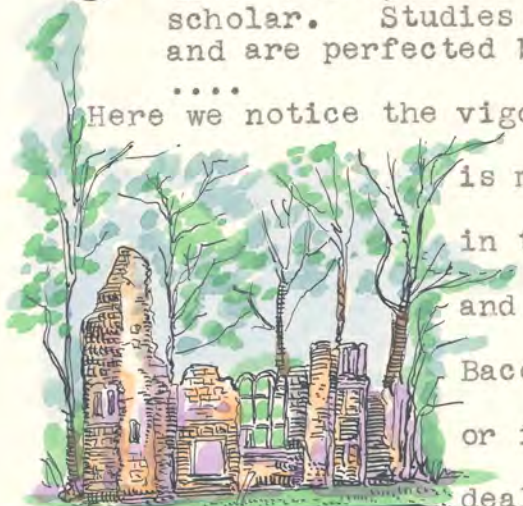 scholar. Studies
and are perfected b
....
Here we notice the vigo
is n
in t
and
Bac
or i
deal